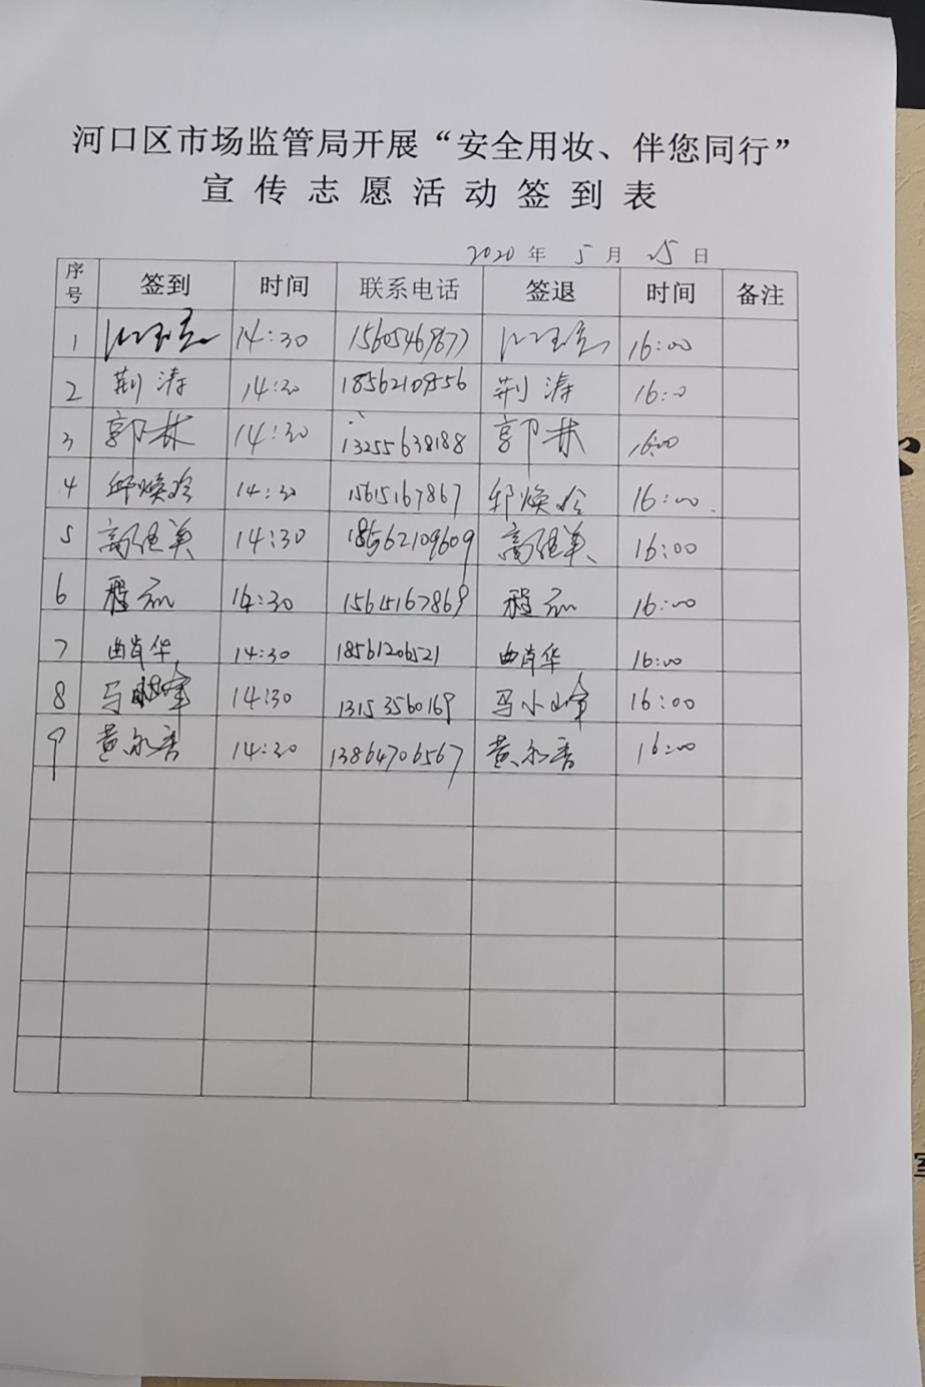 河口区市场监管局开展“安全用妆、伴您同行”
宣传志愿活动签到表
2020年 5月 25日
序号 签到 时间 联系电话 签退 时间 备注
1 14:30 16:00
2 荆涛 14:30 18562109556 荆涛 16:00
3 郭林 14:30 13255638188 郭林 16:00
4 邱焕玲 14:30 15615167867 邱焕玲 16:00
5 高继美 14:30 18562109609 高继美 16:00
6 程 14:30 15615167869 程 16:00
7 曲肖华 14:30 18561206521 曲肖华 16:00
8 马小峰 14:30 13153560169 马小峰 16:00
9 黄永香 14:30 13864706567 黄永香 16:00